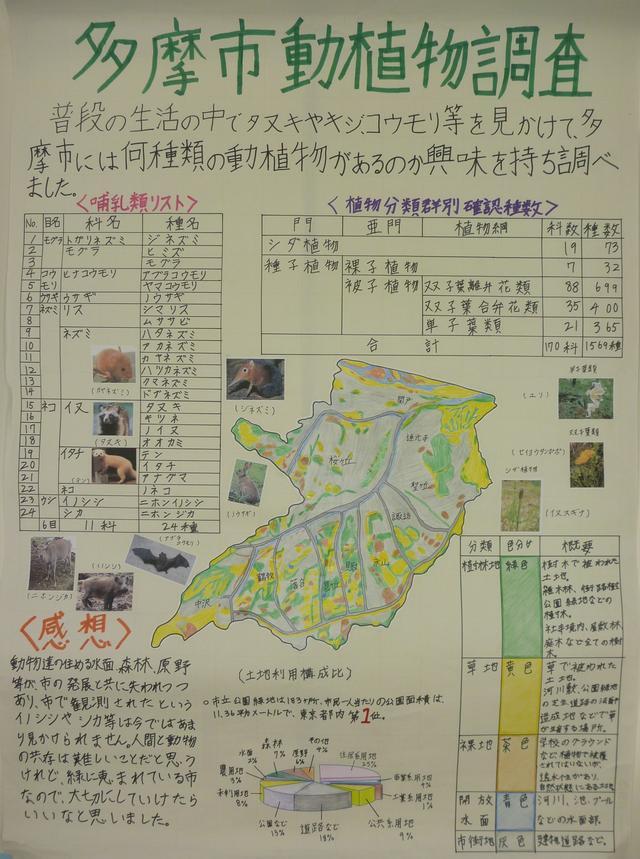 多摩市動植物調査
普段の生活の中でタヌキやキジ、コウモリ等を見かけて、多
摩市には何種類の動植物があるのか興味を持ち調べ
ました。
<哺乳類リスト>
No. 目名 科名 種名
1 モグラ トガリネズミ ジネズミ
2 モグラ ヒミズ
3 モグラ
4 コウ ヒナコウモリ アブラコウモリ
5 モリ ヤマコウモリ
6 ウサギ ウサギ ノウサギ
7 ネズミ リス シマリス
8 ムササビ
9 ネズミ ハタネズミ
10 アカネズミ
11 カヤネズミ
12 ハツカネズミ
13 クマネズミ
14 ドブネズミ
15 ネコ イヌ タヌキ
16 キツネ
17 ノイヌ
18 オオカミ
19 イタチ テン
20 イタチ
21 アナグマ
22 ネコ ノネコ
23 ウシ イノシシ ニホンイノシシ
24 シカ ニホンジカ
6目 11科 24種
(カヤネズミ)
(タヌキ)
(テン)
<植物分類群別確認種数>
門 亜門 植物綱 科数 種数
シダ植物 19 73
種子植物 裸子植物 7 32
被子植物 双子葉離弁花類 88 699
双子葉合弁花類 35 400
単子葉類 21 365
合計 170科 1569種
(ジネズミ)
(ノウサギ)
(アブラコウモリ)
(イノシシ)
(ニホンジカ)
関戸
連光寺
桜ヶ丘
聖ヶ丘
諏訪
永山
貝取
豊ヶ丘
落合
鶴牧
中沢
単子葉類
(ユリ)
双子葉類
(セイヨウタンポポ)
シダ植物
(イヌスギナ)
分類 色分け 概要
樹林地 緑色 樹木で被われた
土地。
雑木林、街路樹
公園緑地などの
樹林。
社寺境内、屋敷林、
庭木など全ての樹
木。
草地 黄色 草で被われた
土地。
河川敷、公園緑地
の芝生、道路の法面
造成地などで草
が生育する場所。
裸地 茶色 学校のグラウンド
など植物で被覆
されてはいないが、
透水性があり、
自然状態にある土地
開放 青色 河川、池、プール
水面 などの水面部。
市街地 灰色 建物、道路など。
<感想>
動物達の住める水面、森林、原野
等が、市の発展と共に失われつつ
あり、市で観測されたという
イノシシやシカ等は今ではあま
り見かけられません。人間と動物
の共存は難しいことだと思う
けれど、緑に恵まれている市
なので、大切にしていけたら
いいなと思いました。
(土地利用構成比)
○市立公園緑地は183ヶ所、市民一人当たりの公園面積は、
11.36平方メートルで、東京都内第1位。
森林 7%
原野 6%
その他 4%
水面 2%
農用地 3%
未利用地 8%
公園など 13%
道路など 18%
公共系用地 9%
工業系用地 1%
商業系用地 4%
住居系用地 25%